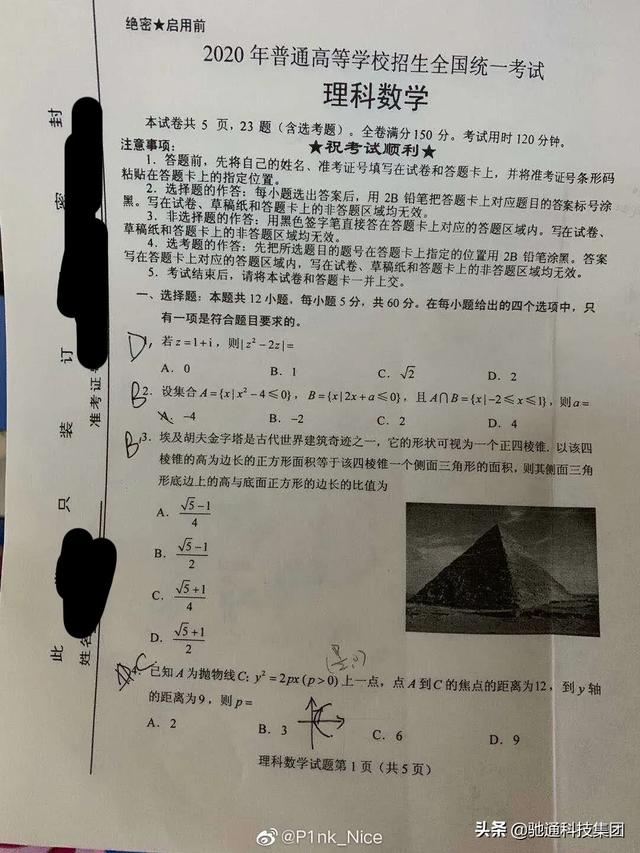 绝密★启用前
2020 年普通高等学校招生全国统一考试
理科数学
本试卷共 5 页，23 题（含选考题）。全卷满分 150 分。考试用时 120 分钟。
★祝考试顺利★
注意事项：
1．答题前，先将自己的姓名、准考证号填写在试卷和答题卡上，并将准考证号条形码
粘贴在答题卡上的指定位置。
2．选择题的作答：每小题选出答案后，用 2B 铅笔把答题卡上对应题目的答案标号涂
黑。写在试卷、草稿纸和答题卡上的非答题区域均无效。
3．非选择题的作答：用黑色签字笔直接答在答题卡上对应的答题区域内。写在试卷、
草稿纸和答题卡上的非答题区域均无效。
4．选考题的作答：先把所选题目的题号在答题卡上指定的位置用 2B 铅笔涂黑。答案
写在答题卡上对应的答题区域内，写在试卷、草稿纸和答题卡上的非答题区域均无效。
5．考试结束后，请将本试卷和答题卡一并上交。
一、选择题：本题共 12 小题，每小题 5 分，共 60 分。在每小题给出的四个选项中，只
有一项是符合题目要求的。
D 1．若 z=1+i，则|z²-2z|=
A．0 B．1 C．√2 D．2
B 2．设集合 A={x|x²-4≤0}，B={x|2x+a≤0}，且 A∩B={x|-2≤x≤1}，则 a=
A．-4 B．-2 C．2 D．4
B 3．埃及胡夫金字塔是古代世界建筑奇迹之一，它的形状可视为一个正四棱锥．以该四
棱锥的高为边长的正方形面积等于该四棱锥一个侧面三角形的面积，则其侧面三角
形底边上的高与底面正方形的边长的比值为
A．(√5-1)/4
B．(√5-1)/2
C．(√5+1)/4
D．(√5+1)/2
C 已知 A 为抛物线 C：y²=2px(p>0) 上一点，点 A 到 C 的焦点的距离为12，到 y 轴
的距离为9，则 p=
A．2 B．3 C．6 D．9
理科数学试题第 1 页（共 5 页）
此 只 装 订 密 封
姓名
准考证号
@P1nk_Nice
头条 @驰通科技集团